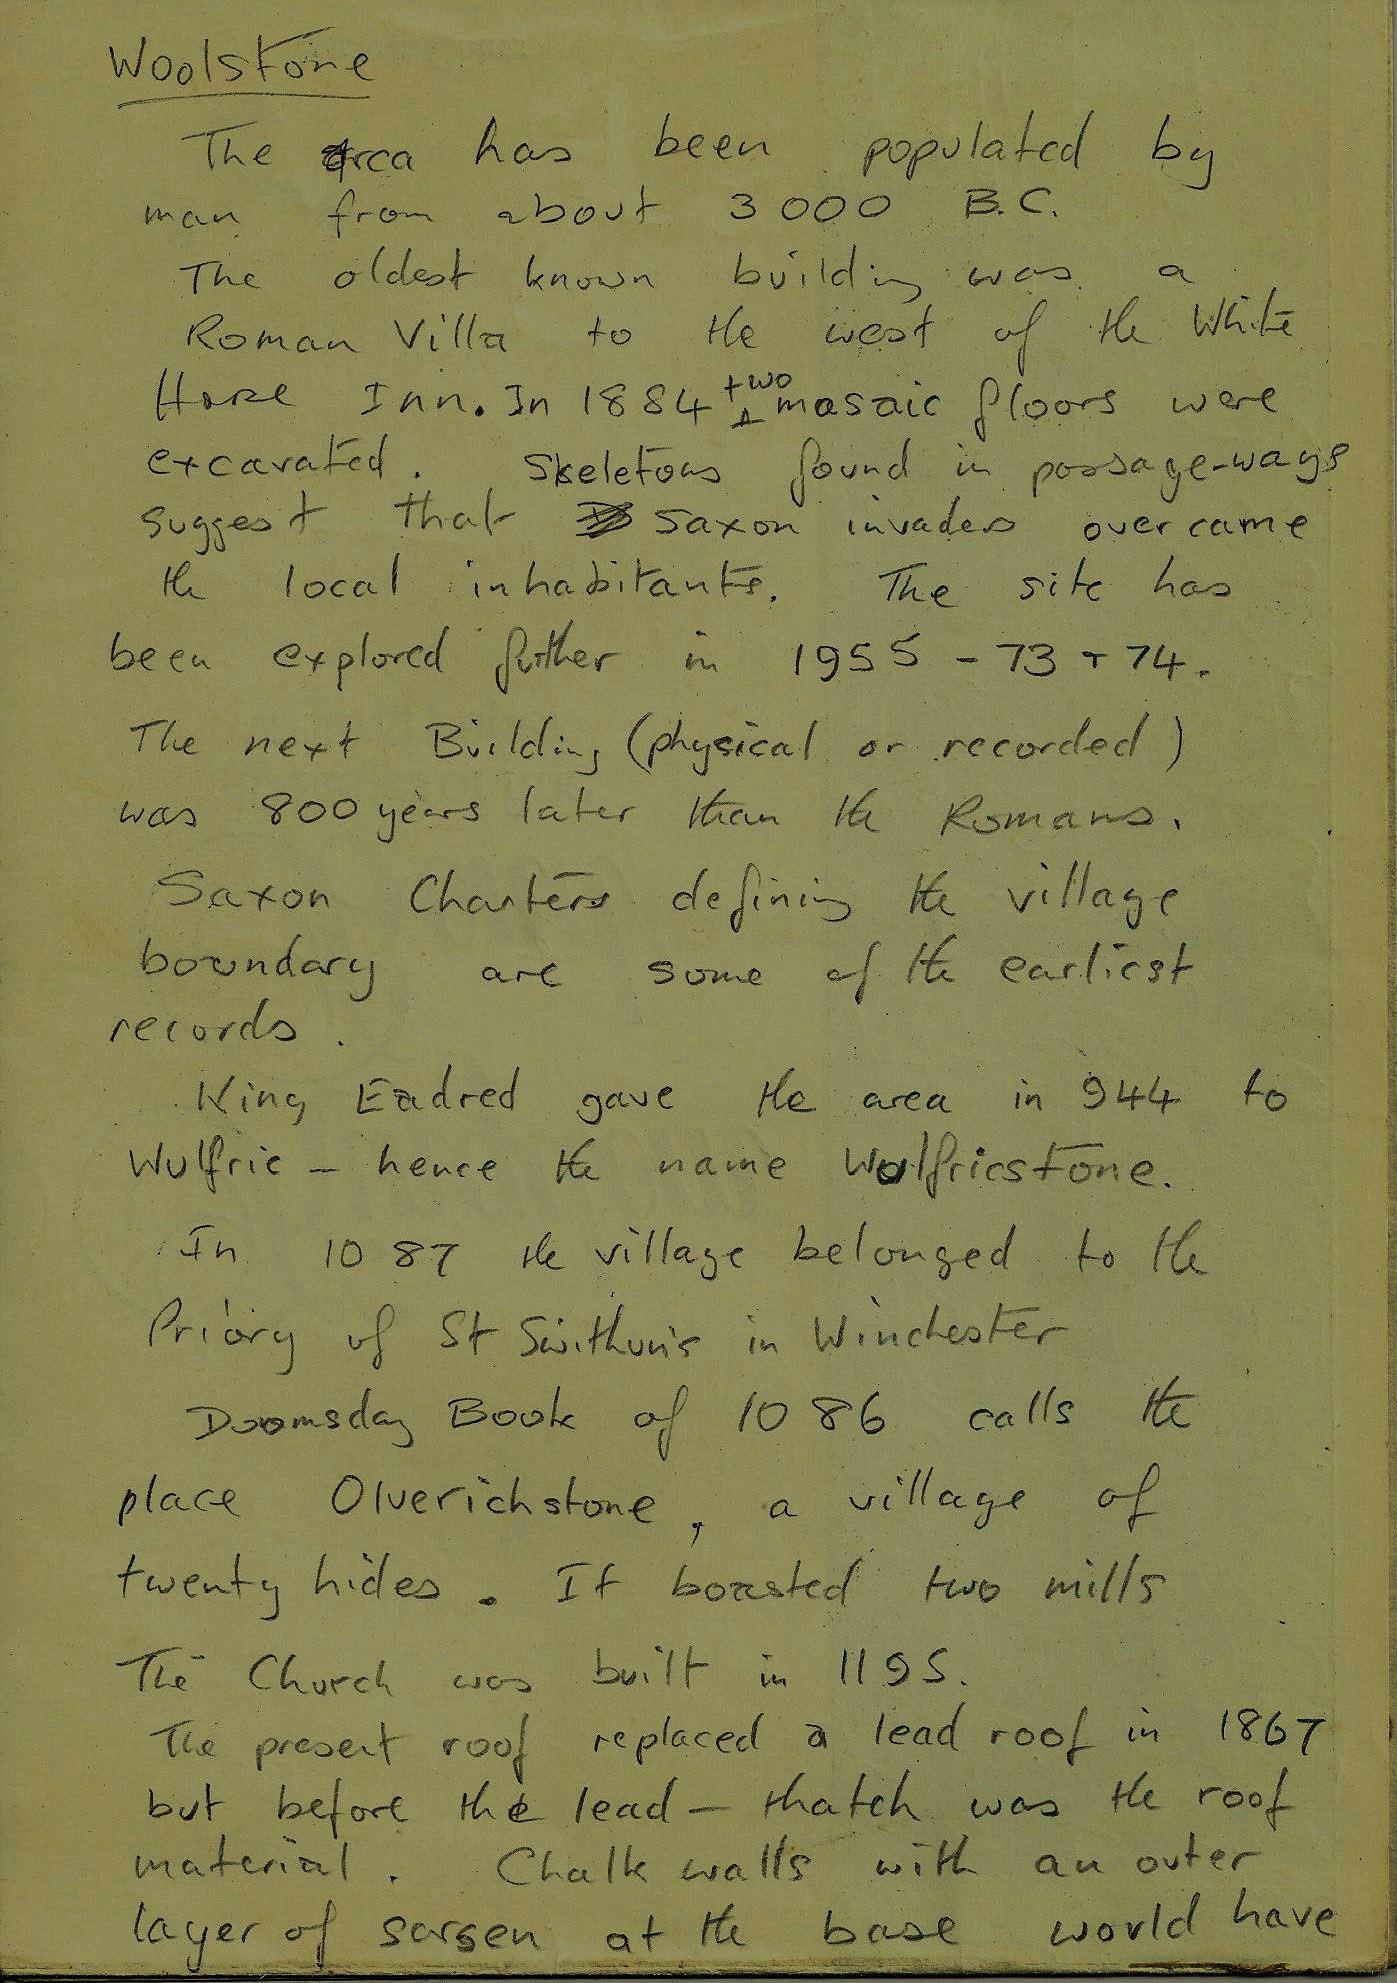 Woolstone
The area has been populated by
man from about 3000 B.C.
The oldest known building was a
Roman Villa to the west of the White
Horse Inn. In 1884 two mosaic floors were
excavated. Skeletons found in passage-ways
suggest that Saxon invaders overcame
the local inhabitants. The site has
been explored further in 1955 - 73 + 74.
The next Building (physical or recorded)
was 800 years later than the Romans.
Saxon Charters defining the village
boundary are some of the earliest
records.
King Eadred gave the area in 944 to
Wulfric - hence the name Wulfricstone.
In 1087 the village belonged to the
Priory of St Swithun's in Winchester
Doomsday Book of 1086 calls the
place Olverichstone, a village of
twenty hides. It boasted two mills
The Church was built in 1195.
The present roof replaced a lead roof in 1867
but before the lead - thatch was the roof
material. Chalk walls with an outer
layer of sarsen at the base would have